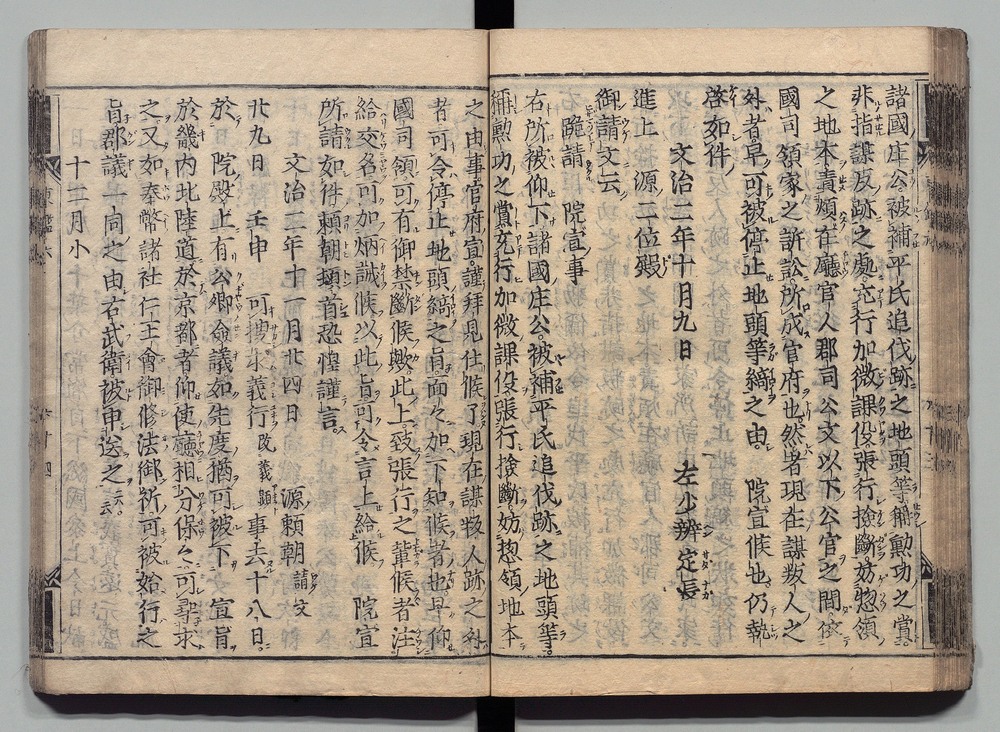 諸國庄公被補平氏追伐跡之地頭等稱勲功之賞
非指謀反跡之處宛行加徴課役張行撿斷妨惣領
之地本責煩在廳官人郡司公文以下公官之間依
國司領家之訴訟所成官府也然者現在謀叛人之
外者早可被停止地頭等縞之由 院宣候也仍執
啓如件
文治二年十月九日 左少辨定長
進上 源二位殿
御請文云
跪請 院宣事
右所被仰下諸國庄公被補平氏追伐跡之地頭等
稱勲功之賞宛行加微課役張行撿斷妨惣領地本
之由事官府宣謹拜見仕候了現在謀叛人跡之外
者可令停止地頭縞之旨面々加下知候者也早仰
國司領可有御禁斷候歟此上致張行之輩候者注
給交名可加炳誡候以此旨可令言上給候 院宣
所請如件頼朝頓首恐惶謹言
文治二年十一月廿四日 源頼朝請文
廿九日 壬申 可搜求義行改義顯事去十八日
於 院殿上有公卿僉議如先度猶可被下 宣旨
於畿内北陸道於京都者仰使廳相分保々可尋求
之又如奉幣諸社仁王會御修法御祈可被始行之
旨群議一同之由右武衛被申送之云云
十二月小
東鑑六